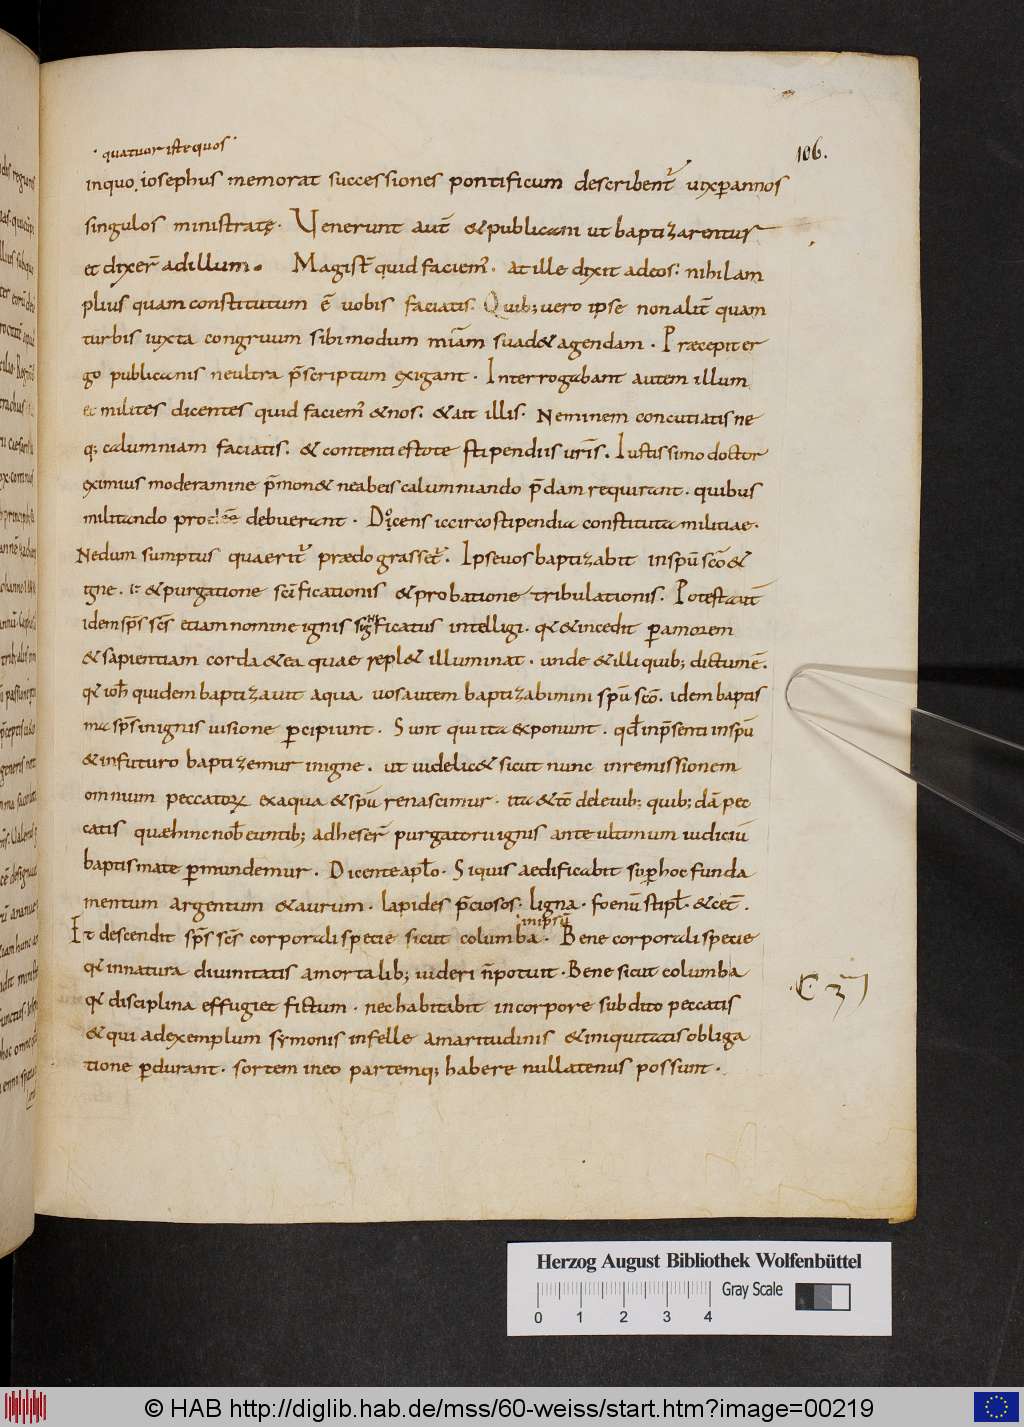 106.
· quatuor iste quos ·
inquo iosephus memorat successiones pontificum describent̄ uixꝑannos
singulos ministrate. Uenerunt aut̄ &publicani ut baptizarentur
et dixer̄ adillum. Magist̄ quid faciem̄. at ille dixit adeos. nihil am
plius quam constitutum ē uobis faciatis. Quib; uero ipse non alit̄ quam
turbis iuxta congruum sibi modum miām suad& agendam. Præcepit er
go publicanis neultra p̄scriptum exigant. Interrogabant autem illum
et milites dicentes quid faciem̄ &nos. &ait illis. Neminem concutiatis ne
q; calumniam faciatis. & contenti estote stipendiis ur̄is. Iustissimo doctor
eximius moderamine p̄mon& neabeis calumniando p̄dam requirant. quibus
militando prodeē debuerant. Docens iccirco stipendia constituta militiae.
Nedum sumptus quaerit̄ praedo grasset̄. Ipse uos baptizabit inspū scō &
igne. iē &purgatione sc̄ificationis &probatione tribulationis. Potest aut̄
idem sp̄s sc̄s etiam nomine ignis significatus intelligi. q̄ &incedit ꝑ amorem
&sapientiam corda &ea quae repl& illuminat. unde &illi quib; dictum ē.
q̄ ioh̄ quidem baptizauit aqua uos autem baptizabimini spū scō. idem baptis
ma sp̄s inignis uisione ꝑcipiunt. Sunt qui ita exponunt. qd̄ inp̄senti inspū
&infuturo baptizemur inigne. ut uidelic& sicut nunc inremissionem
omnium peccatoꝝ exaqua &spū renascimur. ita &tc̄ deleuib; quib;dā pec
catis quae hinc nob̄ euntib; adheser̄ purgatorii ignis ante ultimum iudiciū
baptismate ꝑmundemur. Dicente apl̄o. Siquis aedificabit suꝑ hoc funda
mentum argentum &aurum. lapides p̄ciosos. ligna. foenū stipl̄. &cet̄.
: inipsū
Et descendit sp̄s sc̄s corporali specie sicut columba. Bene corporali specie
q̄ innatura diuinitatis amortalib; uideri n̄potuit. Bene sicut columba
q̄ disciplina effugiet fictum. nec habitabit incorpore subdito peccatis
&qui adexemplum symonis infelle amaritudinis &iniquitatis obliga
tione ꝑdurant. sortem ineo partemq; habere nullatenus possunt.
Herzog August Bibliothek Wolfenbüttel
0 1 2 3 4
Gray Scale
© HAB http://diglib.hab.de/mss/60-weiss/start.htm?image=00219